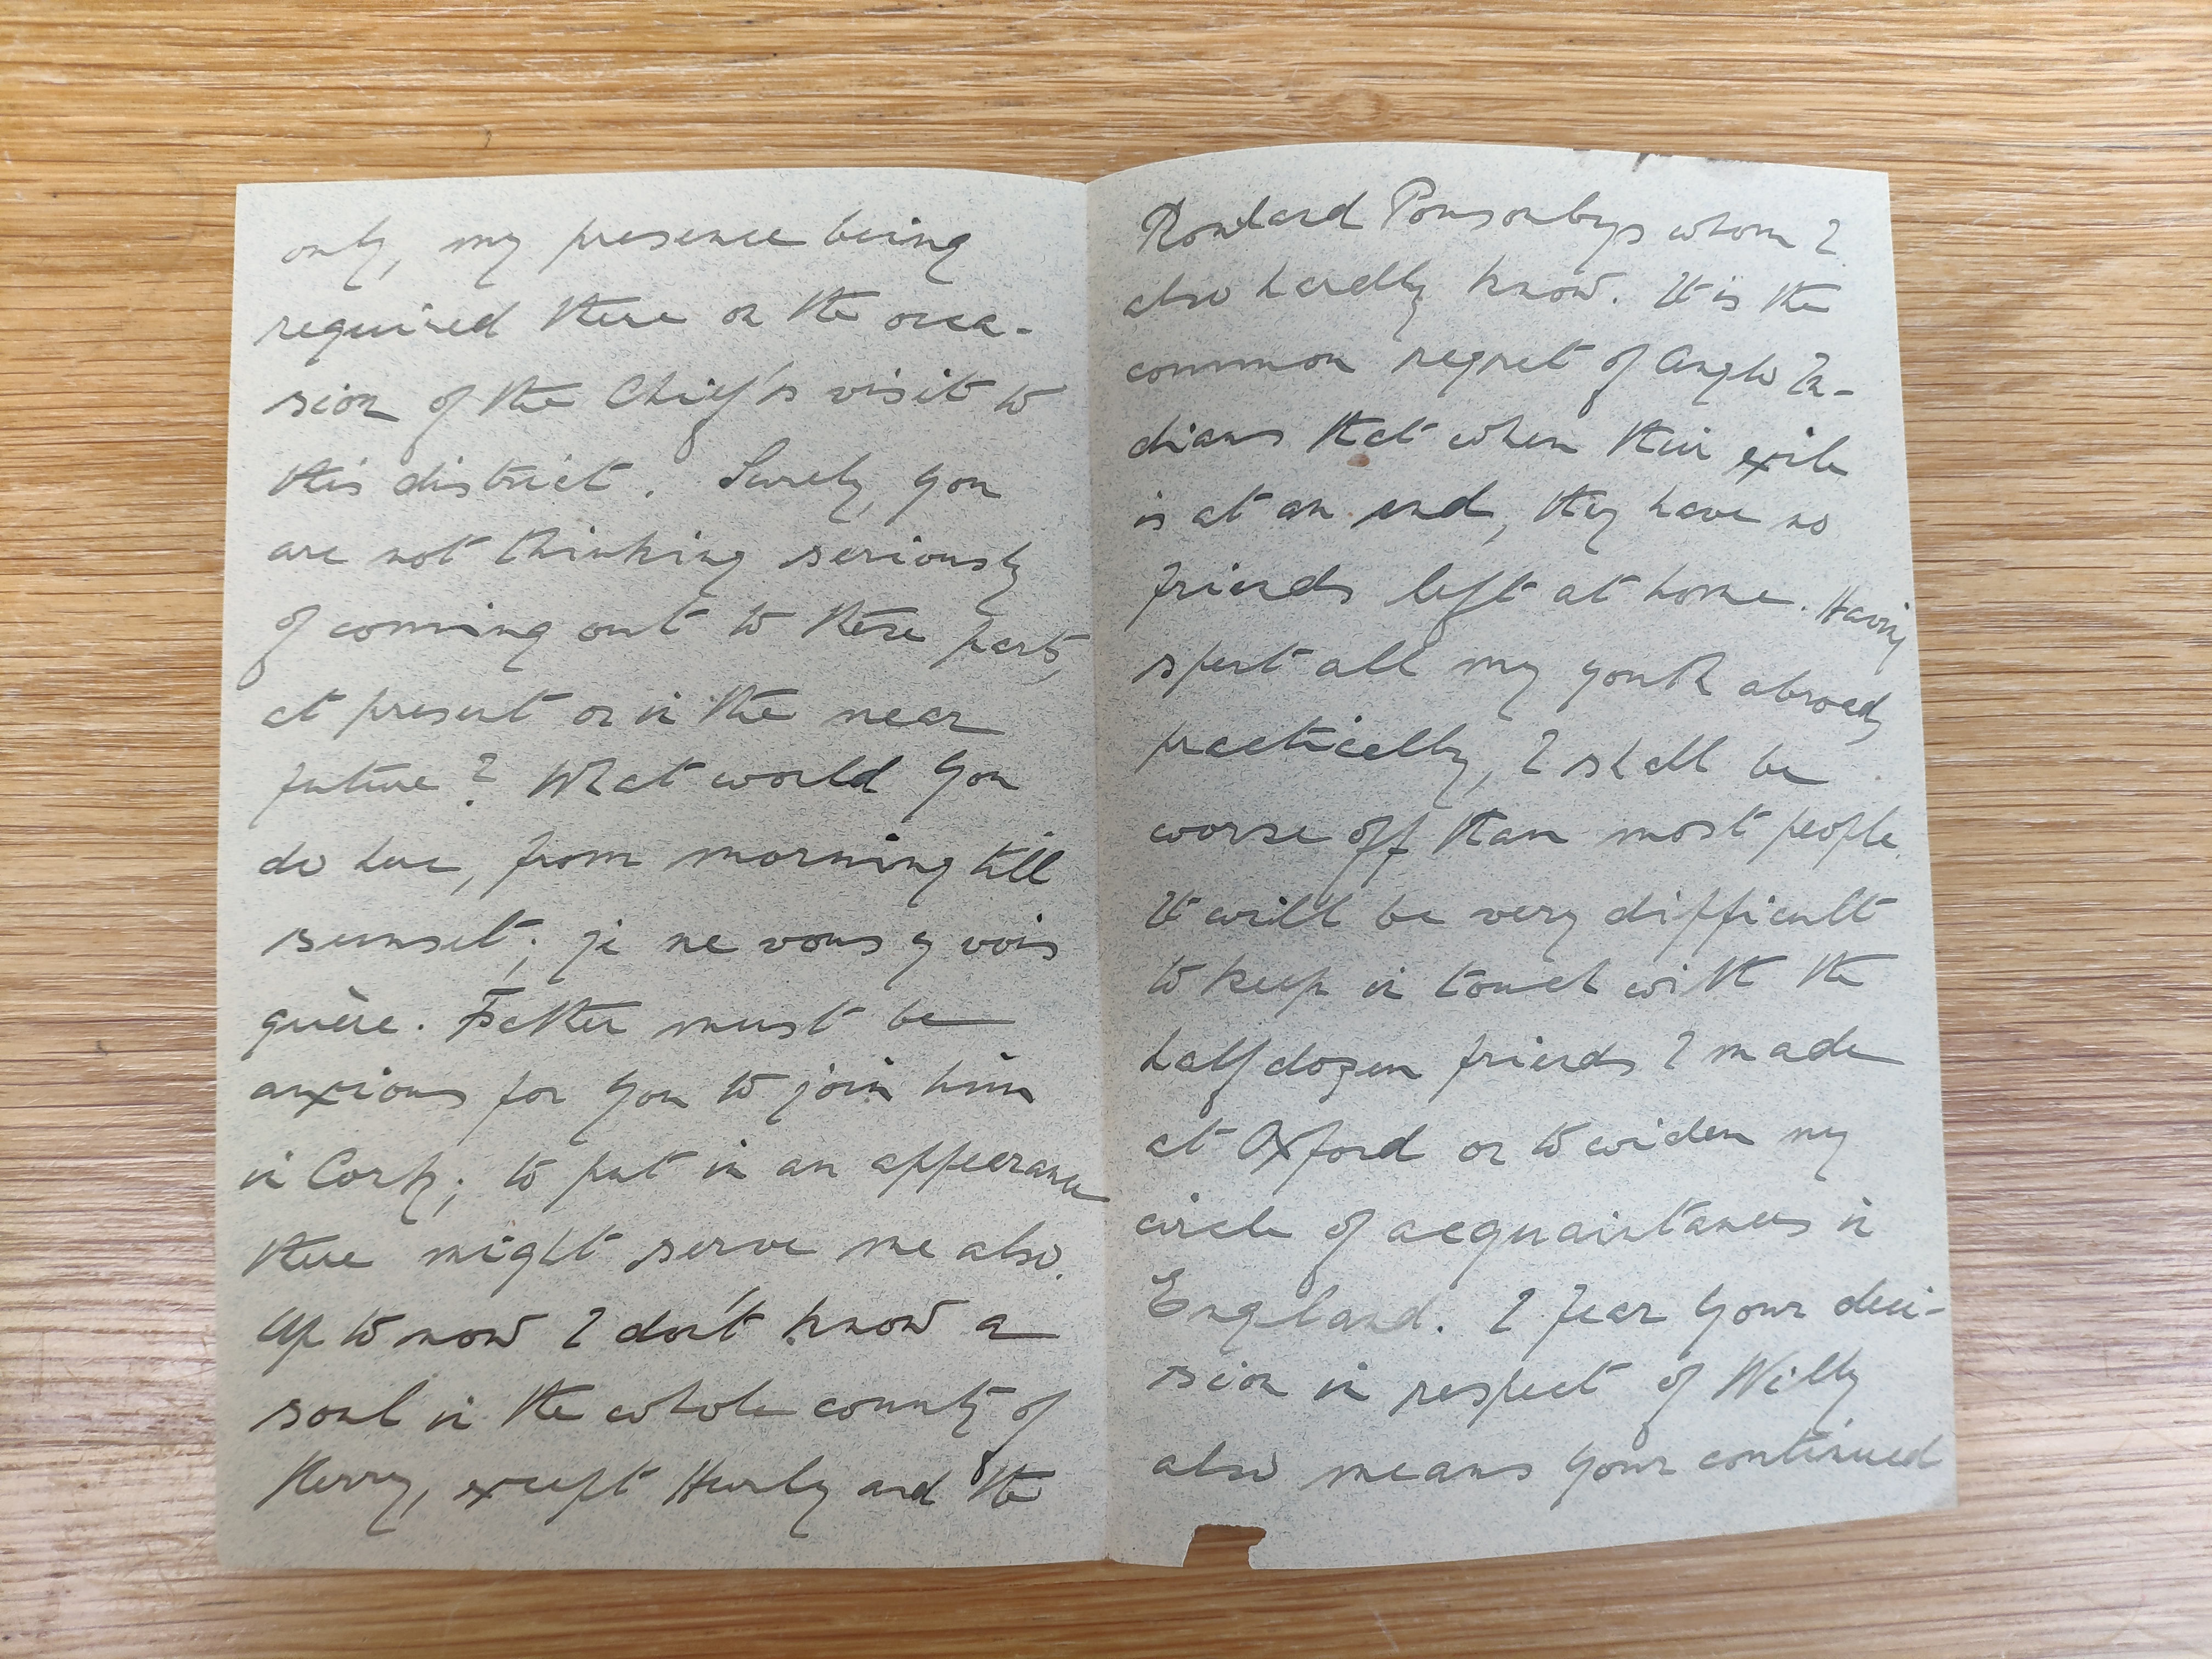 only, my presence being
required there on the occa-
sion of the Chief's visit to
this district. Surely, you
are not thinking seriously
of coming out to these parts,
at present or in the near
future? What would you
do here, from morning till
sunset; je ne vous y vois
guère. Father must be
anxious for you to join him
in Cork; to put in an appearance
there might serve me also.
Up to now I don't know a
soul in the whole county of
Kerry, except Hurly and the
Ponsonbys whom I
also hardly know. It is the
common regret of Anglo In-
dians that when their exile
is at an end, they have no
friends left at home. Having
spent all my youth abroad,
practically, I shall be
worse off than most people.
It will be very difficult
to keep in touch with the
half dozen friends I made
at Oxford or to widen my
circle of acquaintances in
England. I fear your deci-
sion in respect of Willy
also means your continued